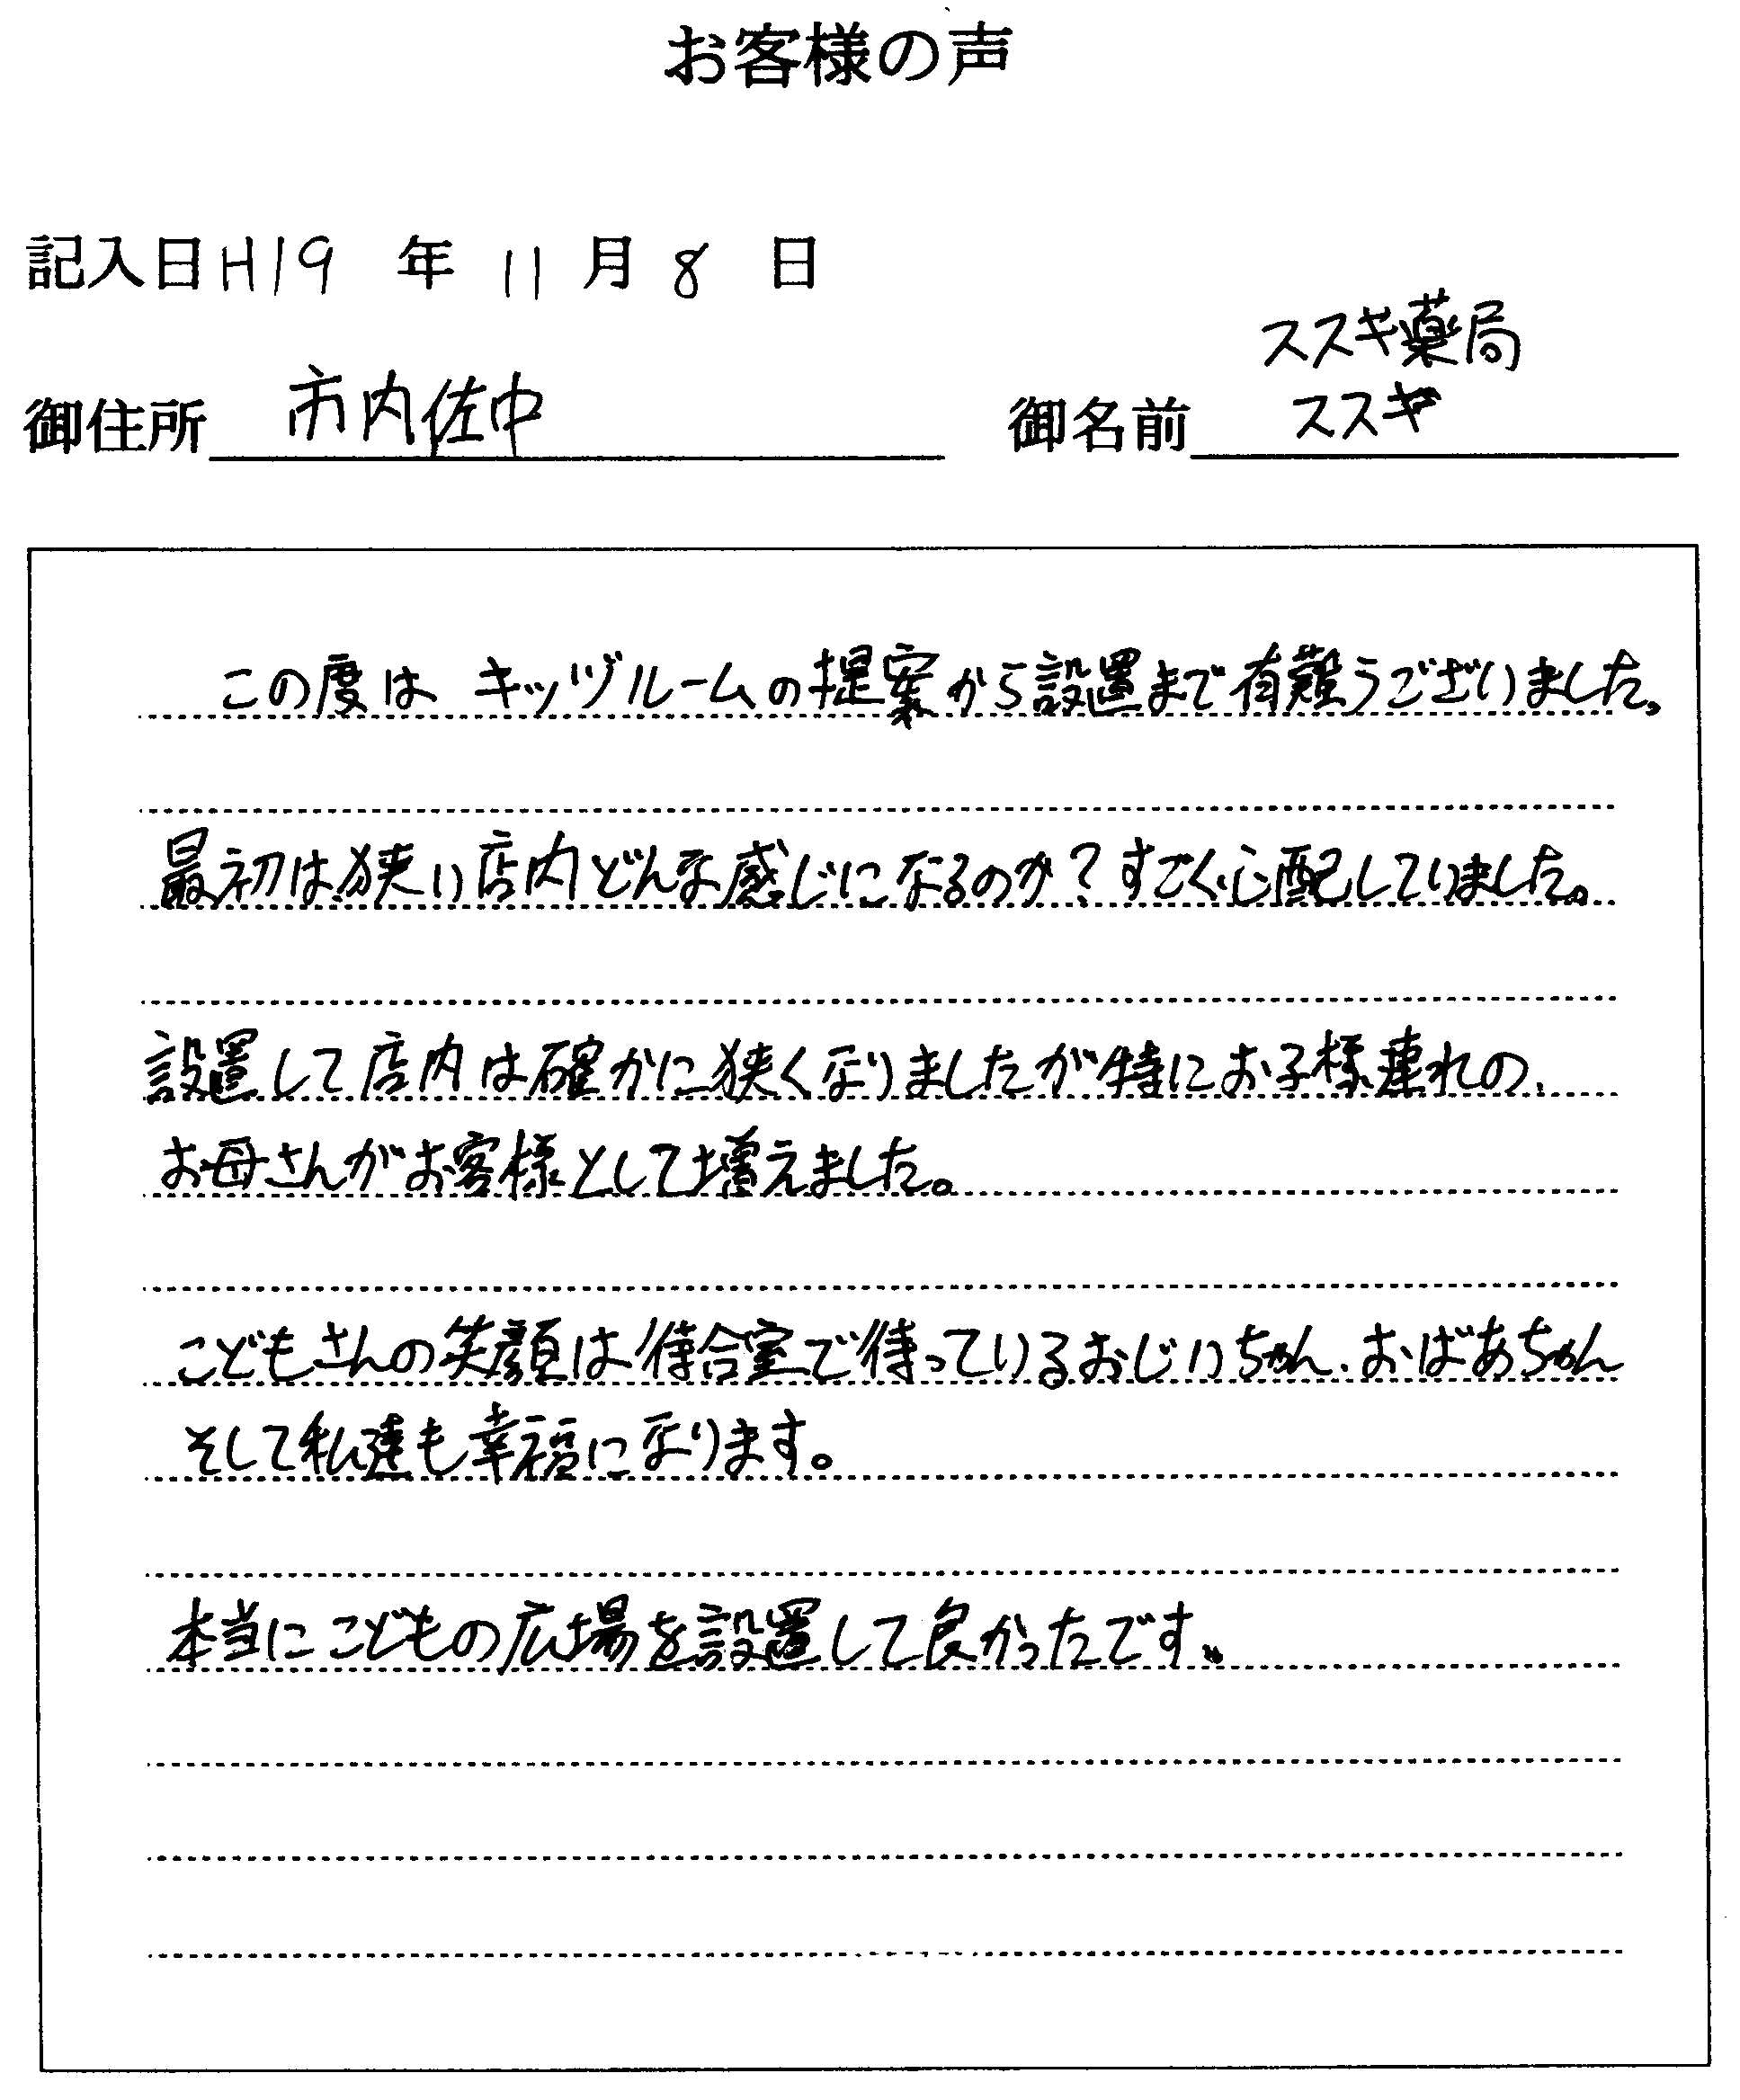 お客様の声
記入日 H19 年 11 月 8 日
ススキ薬局
御住所 市内佐中 御名前 ススキ
この度は キッヅルームの提案から設置まで有難うございました。
最初は狭い店内どんな感じになるのか?すごく心配していました。
設置して店内は確かに狭くなりましたが特にお子様連れの、
お母さんがお客様として増えました。
こどもさんの笑顔は待合室で待っているおじいちゃん、おばあちゃん
そして私達も幸福になります。
本当にこどもの広場を設置して良かったです。